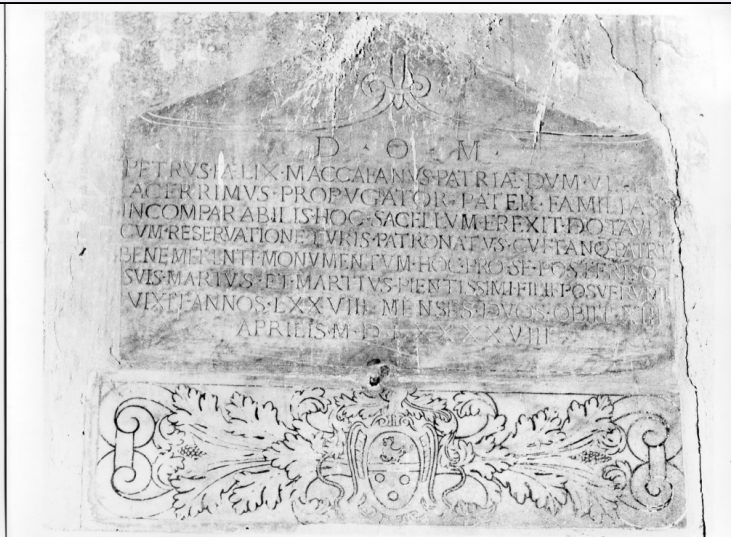 D · O · M ·
PETRVS · FÆLIX · MACCAFANVS · PATRIÆ · DVM
ACERRIMVS · PROPVGATOR · PATER · FAMILIAS
INCOMPARABILIS · HOC · SACELLVM · EREXIT · DOTAVIT
CVM · RESERVATIONE · IVRIS · PATRONATVS · CVI · TANQ · PATRI
BENEMERENTI · MONVMENTVM · HOC · PRO · SE · POSTERISQ
SVIS · MARIVS · ET · MARTIVS · PIENTISSIMI · FILII · POSVERVNT
VIXIT · ANNOS · LXXVIII · MENSES · DVOS · OBIIT
APRILIS · M · D